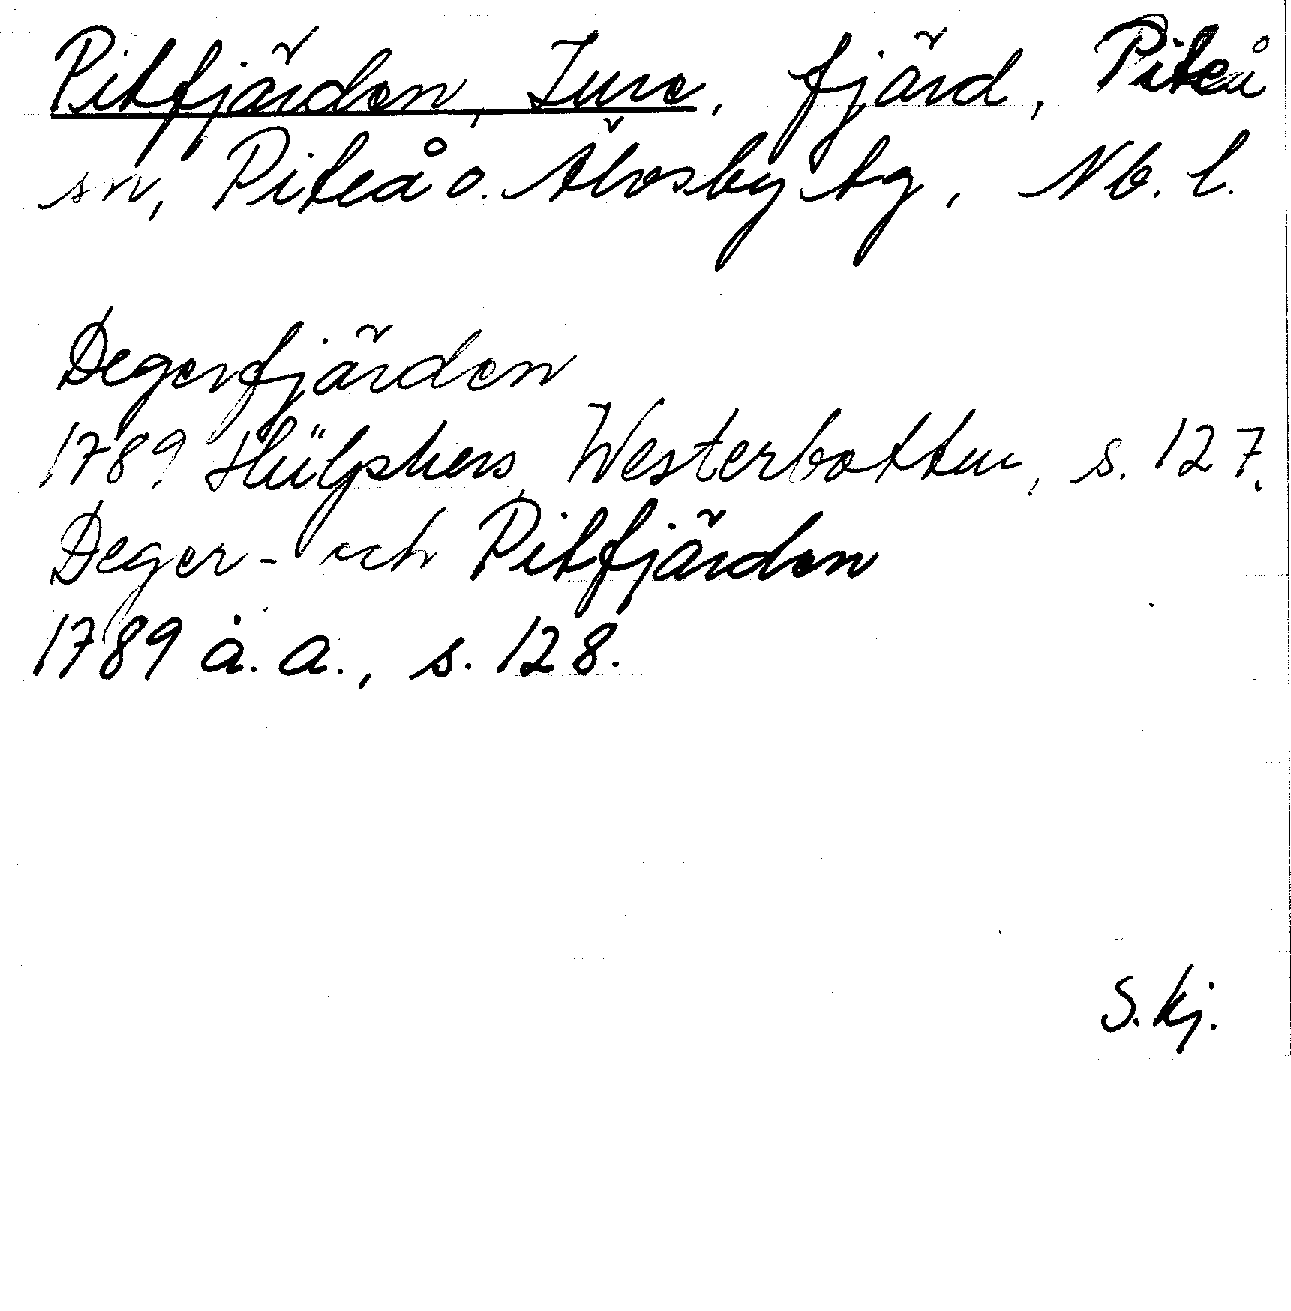 Pitfjärden, Inre, fjärd, Piteå
sn, Piteå o. Älvsby tg, Nb. l.
Degerfjärden
1789 Hülphers, Westerbotten, s. 127.
Deger- och Pitfjärden
1789 a. a., s. 128.
S. kj.